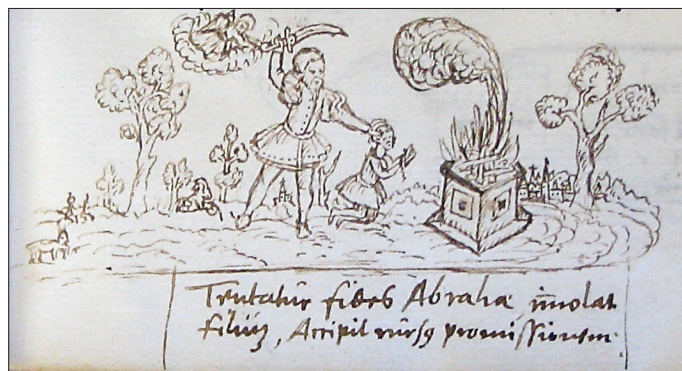 Tentatur fides Abrahae, im̄olat
filiūm, Accipit rursq promissionem.